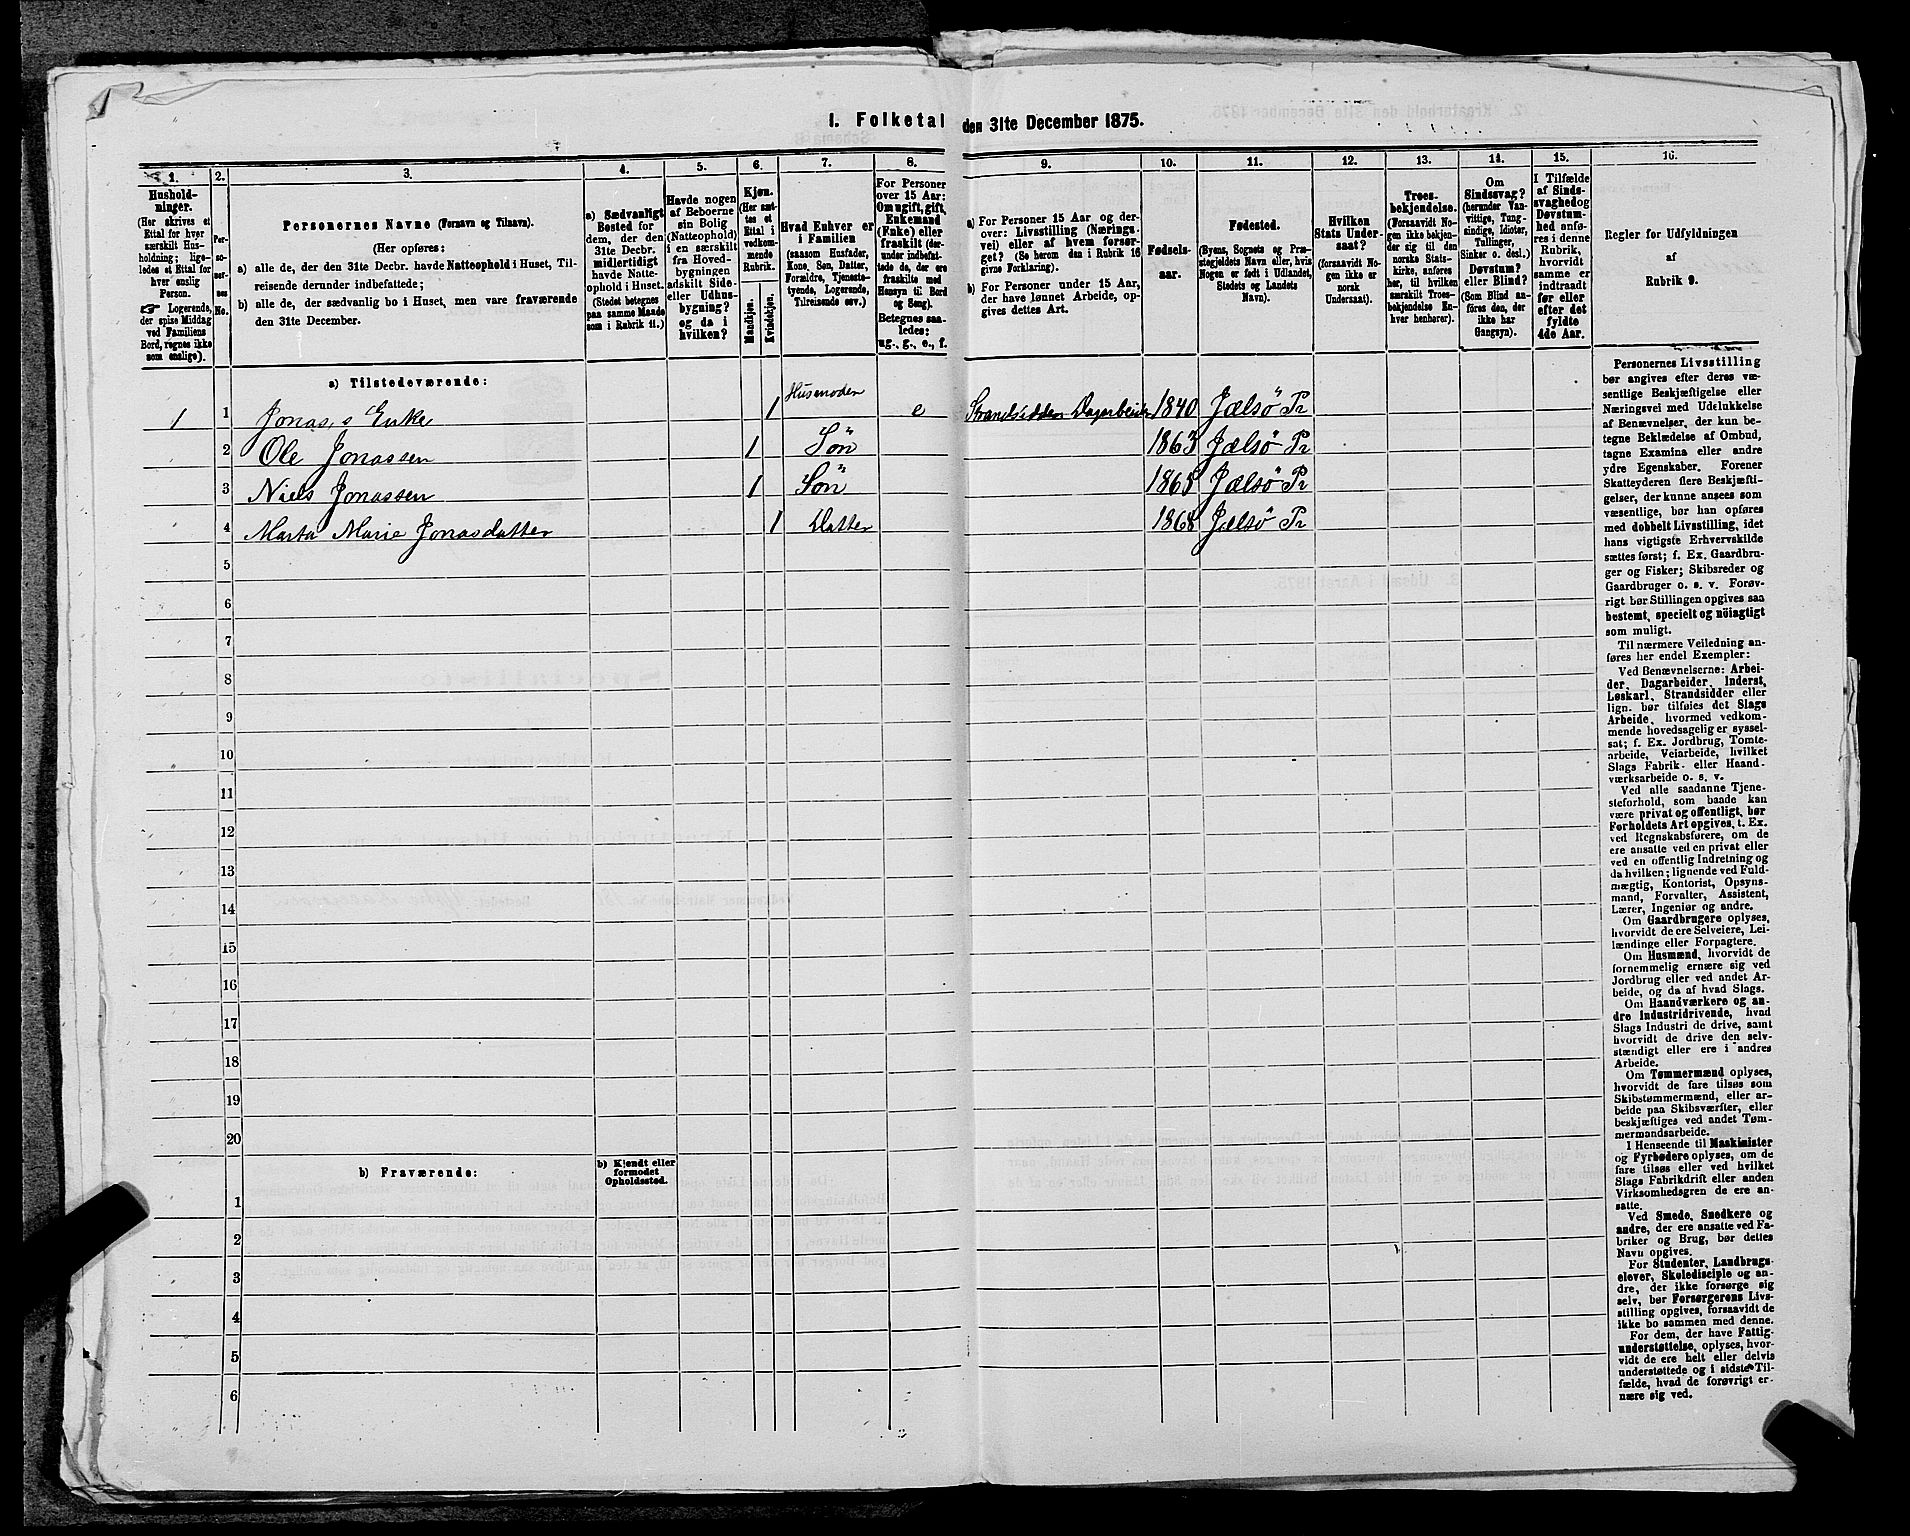 1. Folketal den 31te December 1875.
1.
Hushold-
ninger.
(Her skrives et
Ettal for hver
særskilt Hus-
holdning; lige-
ledes et Ettal for
hver enslig
Person.
☞ Logerende,
der spise Middag
ved Familiens
Bord, regnes ikke
som enslige).
2.
Per-
so-
ner-
nes
No.
3.
Personernes Navne (Fornavn og Tilnavn).
(Her opføres:
a) alle de, der den 31te Decbr. havde Natteophold i Huset, Til-
reisende derunder indbefattede;
b) alle de, der sædvanlig bo i Huset, men vare fraværende
den 31te December.
4.
a) Sædvanligt
Bosted for
dem, der den
31te Decbr.
midlertidigt
havde Natte-
ophold i Huset.
(Stedet betegnes
paa samme Maade
som i Rubrik 11.)
5.
Havde nogen
af Beboerne
sin Bolig
(Natteophold)
i en særskilt
fra Hoved-
bygningen
adskilt Side-
eller Udhus-
bygning?
og da i
hvilken?
6.
Kjøn.
(Her sæt-
tes et
Ettal i
vedkom-
mende
Rubrik.
Mandkjøn.
Kvindekjøn.
7.
Hvad Enhver er
i Familien
(saasom Husfader,
Kone, Søn, Datter,
Forældre, Tjeneste-
tyende, Logerende,
Tilreisende osv.)
8.
For Personer
over 15 Aar:
Om ugift, gift,
Enkemand
(Enke) eller
fraskilt (der-
under indbefat-
tede de, der ere
fraskilte med
Hensyn til Bord
og Seng).
Betegnes saa-
ledes:
ug., g., e., f.
9.
a) For Personer 15 Aar og der-
over: Livsstilling (Nærings-
vei) eller af hvem forsør-
get? (Se herom den i Rubrik 16
givne Forklaring).
b) For Personer under 15 Aar,
der have lønnet Arbeide, op-
gives dettes Art.
10.
Fødsels-
aar.
11.
Fødested.
(Byens, Sognets og Præ-
stegjeldets Navn eller, hvis
Nogen er født i Udlandet,
Stedets og Landets
Navn).
12.
Hvilken
Stats Under-
saat?
(forsaavidt No-
gen ikke er
norsk
Undersaat).
13.
Troes-
bekjendelse.
(Forsaavidt No-
gen ikke bekjen-
der sig til den
norske Stats-
kirke, anføres
her, til hvilken
særskilt Troes-
bekjendelse En-
hver henhører).
14.
Om
Sindssvag?
(herunder Van-
vittige, Tung-
sindige, Idioter,
Tullinger,
Sinker o. desl.)
Døvstum?
eller Blind?
(Som Blind an-
føres den, der
ikke har
Gangsyn).
15.
I Tilfælde
af Sinds-
svaghed og
Døvstum-
hed anfø-
res i denne
Rubrik,
hvorvidt
samme er
indtraadt
før eller
efter det
fyldte
4de Aar.
16.
Regler for Udfyldningen
af
Rubrik 9.
a) Tilstedeværende:
1 1 Jonas's Enke 1 Husmoder e Strandsidder Dagarbeider 1840 Jælsö Pr
2 Ole Jonassen 1 Sön 1863 Jælsö Pr
3 Niels Jonassen 1 Sön 1865 Jælsö Pr
4 Marta Marie Jonasdatter 1 Datter 1868 Jælsö Pr
5
6
7
8
9
10
11
12
13
14
15
16
17
18
19
20
b) Fraværende:
b) Kjendt eller
formodet
Opholdssted.
1
2
3
4
5
6
Personernes Livsstilling
bør angives efter deres væ-
sentlige Beskjæftigelse eller
Næringsvei med Udelukkelse
af Benævnelser, der kun be-
tegne Beklædelse af Ombud,
tagne Examina eller andre
ydre Egenskaber. Forener
Skatteyderen flere Beskjæfti-
gelser, der kunne ansees som
væsentlige, bør han opføres
med dobbelt Livsstilling, idet
hans vigtigste Erhvervskilde
sættes først; f. Ex. Gaardbru-
ger og Fisker; Skibsreder og
Gaardbruger o. s. v. Forøv-
rigt bør Stillingen opgives saa
bestemt, specielt og nöiagtigt
som muligt.
Til nærmere Veiledning an-
føres her endel Exempler:
Ved Benævnelserne: Arbei-
der, Dagarbeider, Inderst,
Løskarl, Strandsidder eller
lign. bør tilføies det Slags
Arbeide, hvormed vedkom-
mende hovedsagelig er syssel-
sat; f. Ex. Jordbrug, Tomte-
arbeide, Veiarbeide, hvilket
Slags Fabrik- eller Haand-
værksarbeide o. s. v.
Ved alle saadanne Tjene-
steforhold, som baade kan
være privat og offentligt, bør
Forholdets Art opgives, t. Ex.
ved Regnskabsførere, om de
ere ansatte ved en privat eller
ved en offentlig Indretning og
da hvilken; lignende ved Fuld-
mægtig, Kontorist, Opsyns-
mand, Forvalter, Assistent,
Lærer, Ingeniør og andre.
Om Gaardbrugere oplyses,
hvorvidt de ere Selveiere, Lei-
lændinge eller Forpagtere.
Om Husmænd, hvorvidt de
fornemmelig ernære sig ved
Jordbrug eller ved andet Ar-
beide, og da af hvad Slags.
Om Haandværkere og an-
dre Industridrivende, hvad
Slags Industri de drive, samt
hvorvidt de drive den selv-
stændigt eller ere i andres
Arbeide.
Om Tømmermænd oplyses,
hvorvidt de fare tilsøs som
Skibstømmermænd, eller ar-
beide paa Skibsværfter, eller
beskjæftiges ved andet Tøm-
mermandsarbeide.
I Henseende til Maskinister
og Fyrbødere oplyses, om de
fare tilsøs eller ved hvilket
Slags Fabrikdrift eller anden
Virksomhedsgren de ere an-
satte.
Ved Smede, Snedkere og
andre, der ere ansatte ved Fa-
briker og Brug, bør dettes
Navn opgives.
For Studenter, Landbrugs-
elever, Skoledisciple og an-
dre, der ikke forsørge sig
selv, bør Forsørgerens Livs-
stilling opgives, forsaavidt de
ikke bo sammen med denne.
For dem, der have Fattig-
understøttelse, oplyses, hvor-
vidt de ere helt eller delvis
understøttede og i sidste Til-
fælde, hvad de forøvrigt er-
nære sig ved.